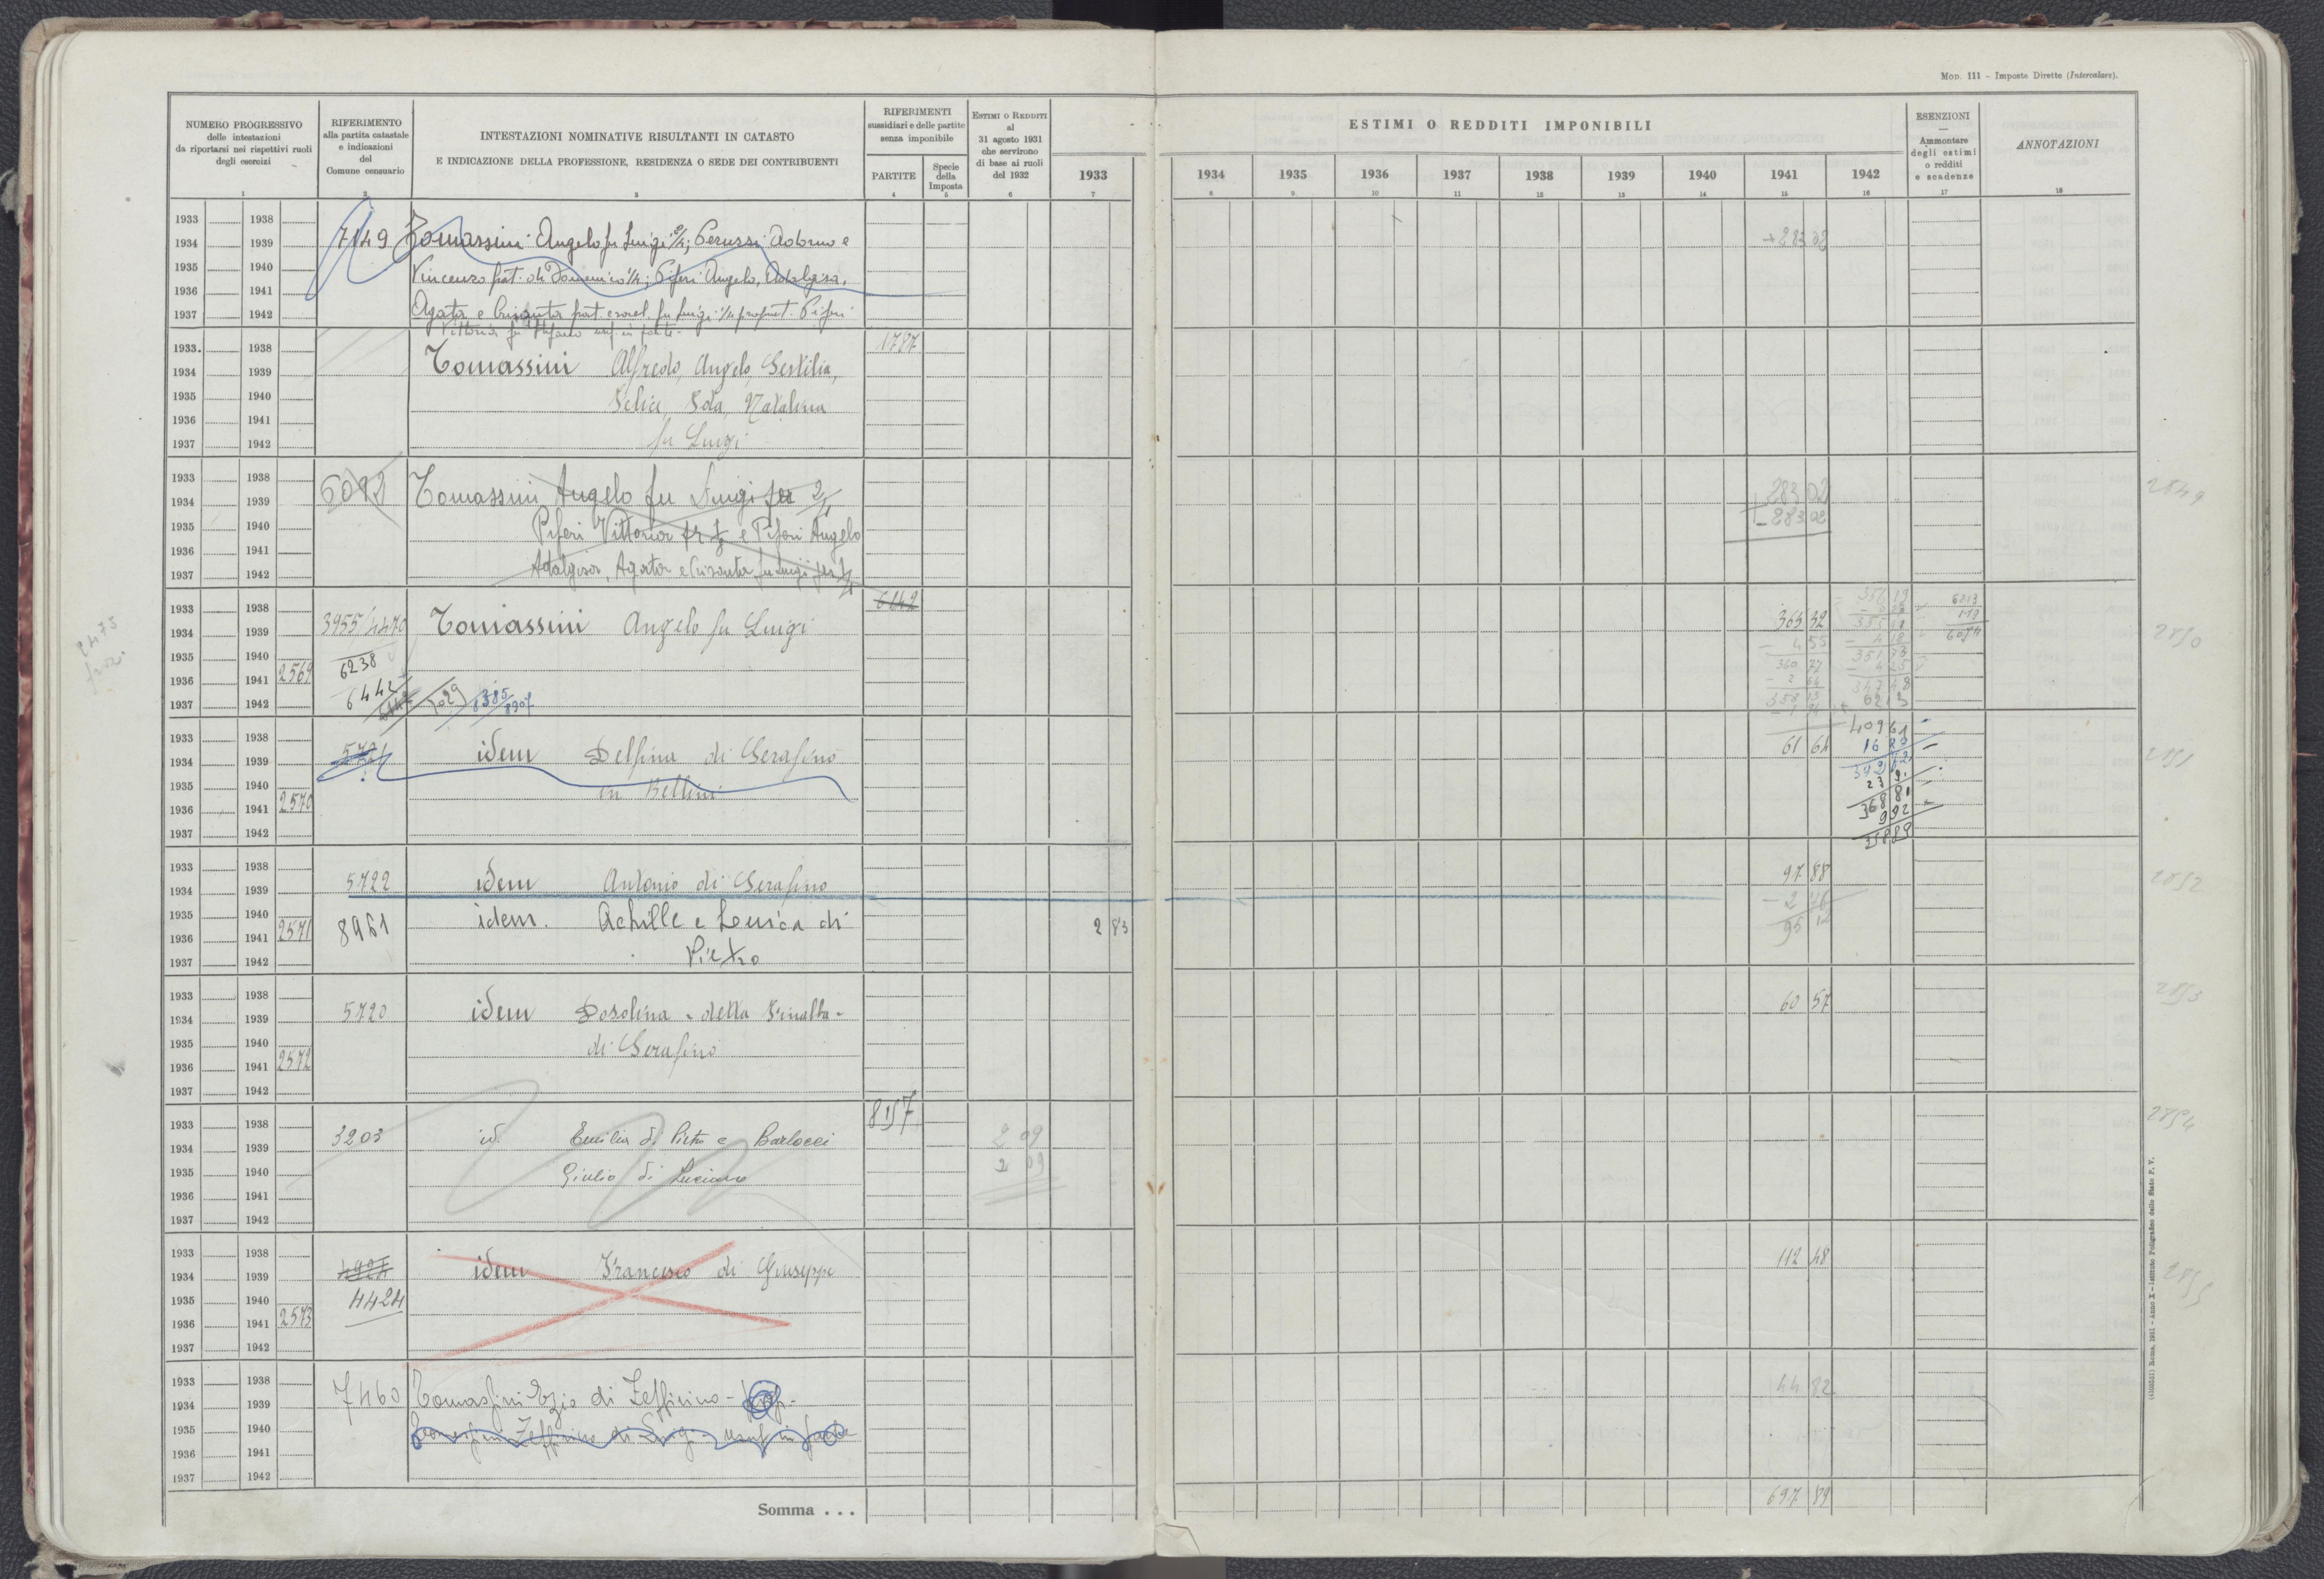 Mod. 111 - Imposte Dirette (Intercalare).
NUMERO PROGRESSIVO
delle intestazioni
da riportarsi nei rispettivi ruoli
degli esercizi
1
RIFERIMENTO
alla partita catastale
e indicazioni
del
Comune censuario
2
INTESTAZIONI NOMINATIVE RISULTANTI IN CATASTO
E INDICAZIONE DELLA PROFESSIONE, RESIDENZA O SEDE DEI CONTRIBUENTI
3
RIFERIMENTI
sussidiari e delle partite
senza imponibile
PARTITE
4
Specie
della
Imposta
5
ESTIMI O REDDITI
al
31 agosto 1931
che servirono
di base ai ruoli
del 1932
6
1933
7
ESTIMI O REDDITI IMPONIBILI
1934 1935 1936 1937 1938 1939 1940 1941 1942
8 9 10 11 12 13 14 15 16
ESENZIONI
Ammontare
degli estimi
o redditi
e scadenze
17
ANNOTAZIONI
18
1933 1938
1934 1939 7149 Tomassini Angelo fu Luigi 2/4; Perussi Adorno e + 283 02
1935 1940 Vincenzo frat. di Domenico 1/4; Piferi Angelo, Adalgisa,
1936 1941
1937 1942 Agata e Crisanta frat. e sorel. fu Luigi 1/4 propriet. Piferi
Vittoria fu Stefano usuf. in parte.
1933 1938 1787
1934 1939 Tomassini Alfredo, Angelo, Sestilia,
1935 1940 Felice, Ida, Natalina
1936 1941
1937 1942 fu Luigi
1933 1938
1934 1939 6092 Tomassini Angelo fu Luigi per 2/4 283 02 2549
1935 1940 Piferi Vittoria e Piferi Angelo - 283 02
1936 1941
1937 1942 Adalgisa, Agata e Crisanta fu Luigi per 1/4
1933 1938 6142
1934 1939 3955/4470 Tomassini Angelo fu Luigi 365 32
1935 1940 6238 - 4 55
1936 1941 2569 6442 360 77
1937 1942 8385 8907
1933 1938 409 61
1934 1939 idem Delfina di Serafino 61 64 16
1935 1940 in Bellini
1936 1941 2570 368 81
1937 1942 9 92
358 89
1933 1938
1934 1939 5722 idem Antonio di Serafino 97 88
1935 1940 idem. Achille e Leurica di - 2 76
1936 1941 2571 8961 2 83 95 12
1937 1942 Pietro
1933 1938
1934 1939 5720 idem Dosolina - detta Finalba - 60 57
1935 1940 di Serafino
1936 1941 2572
1937 1942
1933 1938 8157
1934 1939 3203 id. Emilia di Pietro e Barlocci 2 09
1935 1940 Giulio di Luciano 2 09
1936 1941
1937 1942
1933 1938
1934 1939 4924 idem Francesco di Giuseppe 112 48
1935 1940 4424
1936 1941 2573
1937 1942
1933 1938
1934 1939 7460 Tomassini Ezio di Zeffirino - prop. - 44 82
1935 1940 Tomassini Zeffirino di Luigi - usuf. in parte
1936 1941
1937 1942
Somma . . . 697 89
(4103551) Roma, 1931 - Anno X - Istituto Poligrafico dello Stato P. V.